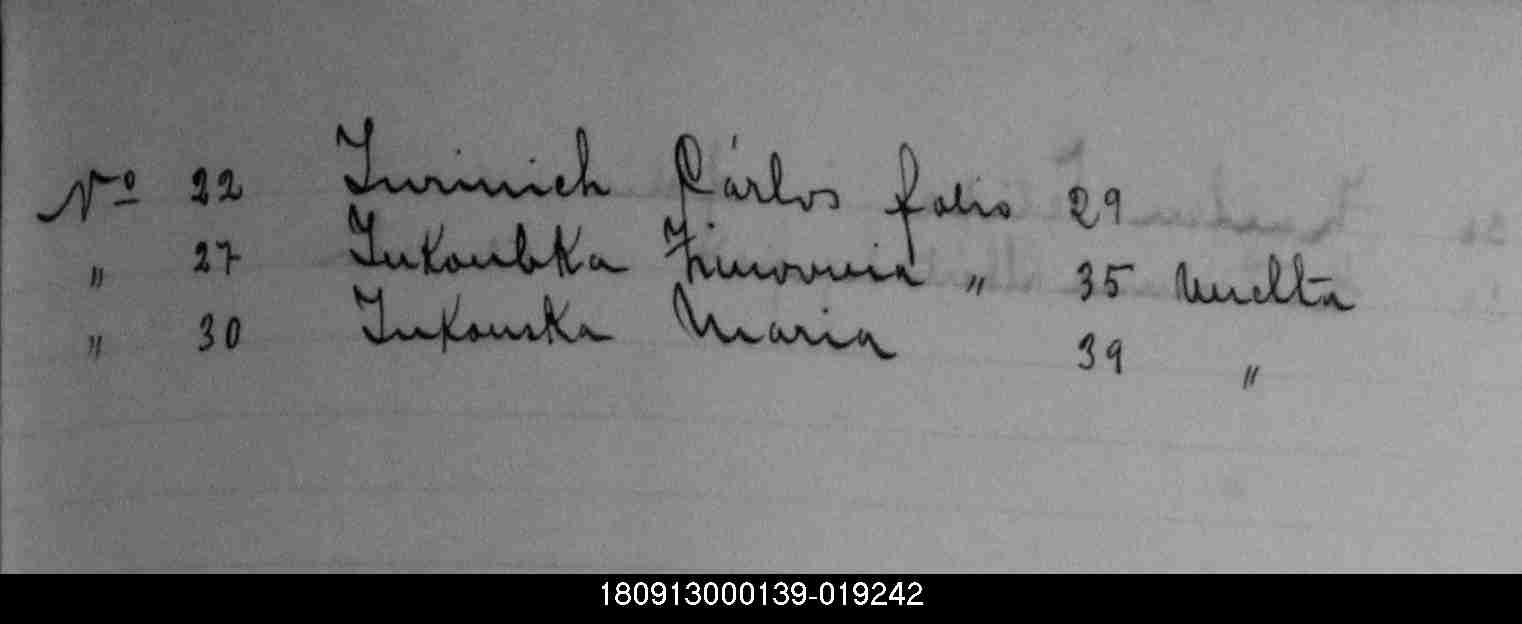 Nº 22 Zurinich Cárlos folio 29
" 27 Zukoubka Zinovuia " 35 vuelta
" 30 Zukouska Maria 39 "
180913000139-019242